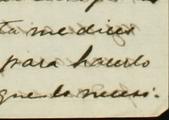 ta me dices
para hacerlo
que lo necesi-